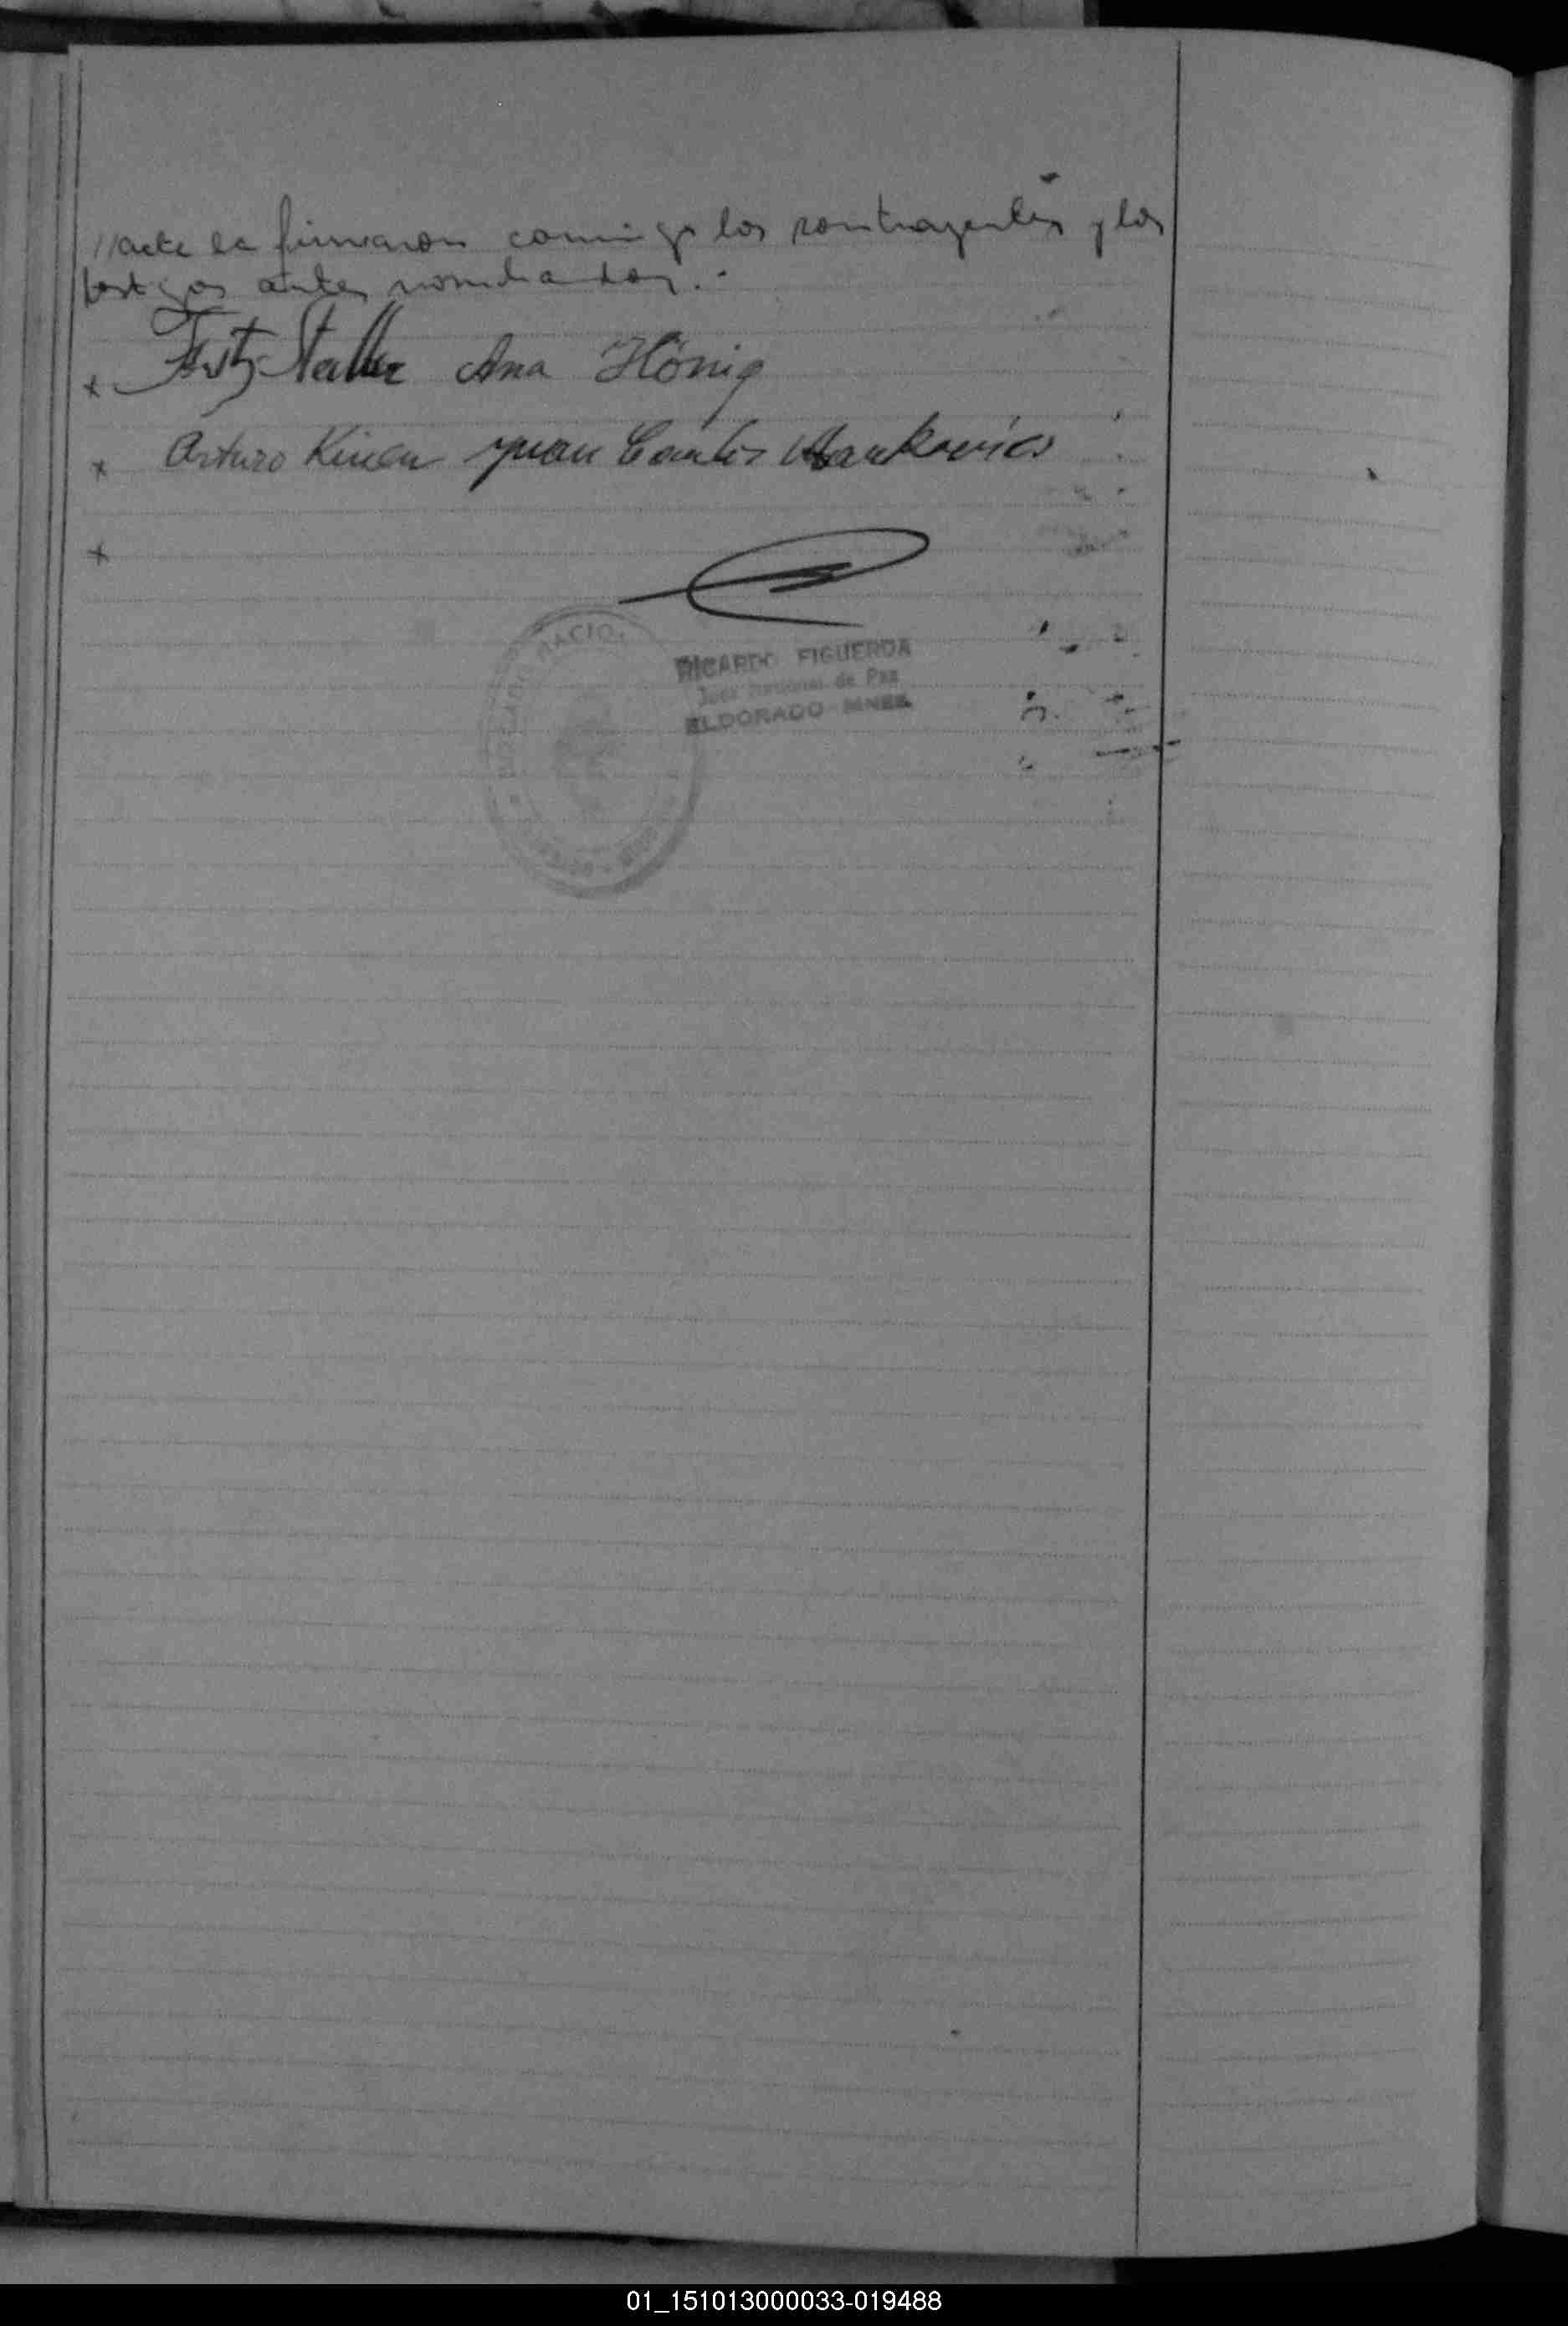 //acta la firmaron conmigo los contrayentes y los
testigos antes nombrados.-
x Fritz Staller Ana Hönig
x Arturo Kinen Juan Carlos Markovics
x
NACIO
RICARDO FIGUEROA
Juez Nacional de Paz
ELDORADO - MNES.
01_151013000033-019488